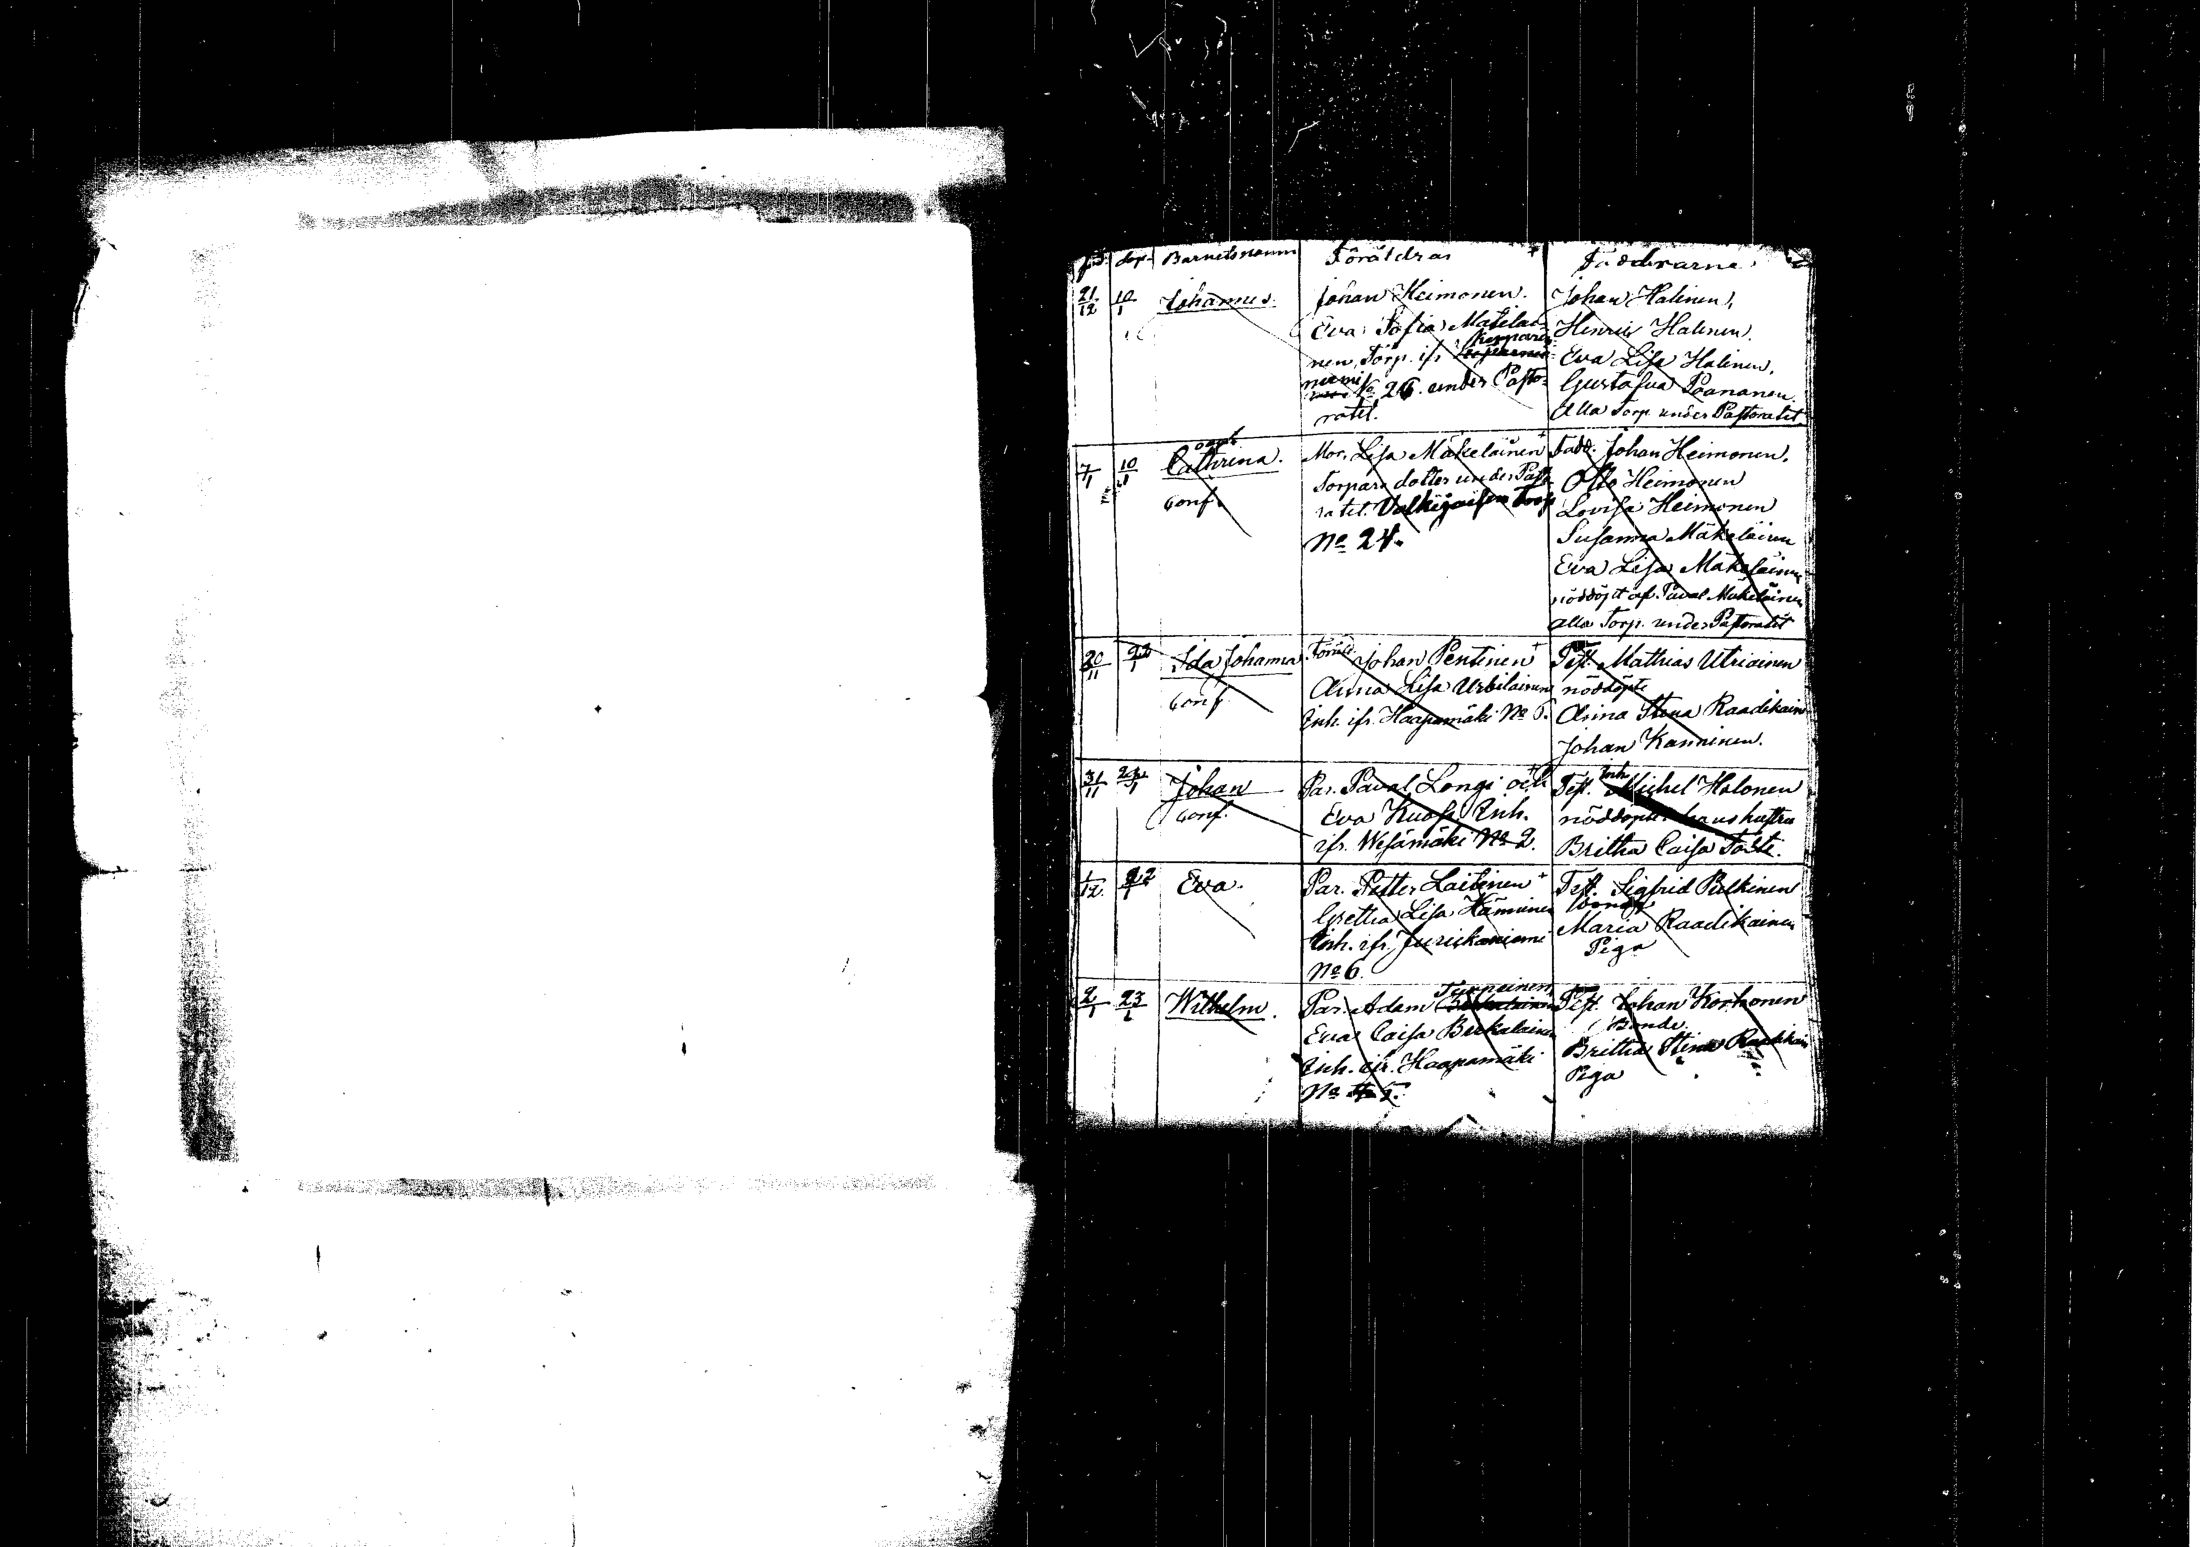 föd. döp. Barnets namn Föräldrar Faddrarne
21/12 10/1 Johannes.
Johan Heimonen.
Eva Sofia Matilai-
nen, Torp. ifr.
niemi No 26. under Pasto-
ratet.
Johan Halinen,
Henric Halinen.
Eva Lisa Halinen.
Gustafva Paananen.
Alla Torp under Pastoratet.
7/1 10/1 Cathrina.
Conf.
Mor. Lisa Mäkeläinen
Torpare dotter under Pasto-
ratet. Valkijäisen Torp
No 24.
Fadd. Johan Heimonen.
Otto Heimonen
Lovisa Heimonen
Susanna Mäkeläinen
Eva Lisa Mäkeläinen
nöddöpt af Påvel Mäkeläinen
Alla Torp. under Pastoratet
20/11 22/1 Ida Johanna.
Conf.
Föräld. Johan Pentinen
Anna Lisa
Inh. ifr. Haapamäki No 5.
Test. Mathias Utriainen
nöddöpte
Anna Stina Raadikain
Johan Kanninen.
31/11 Johan
Conf.
Par. Påvel Longi och
Eva Kuosa Inh.
ifr. Wesämäki No 2.
Test. Inh. Michel Holonen
nöddöpte. hans hustru
Britha Caisa
1/12 22/1 Eva.
Par. Petter Laitinen
Gretha Lisa Hämäinen
Inh. ifr. Jurickaniemi
No 6.
Test. Sigfrid Pulkinen
Maria Raadikainen
Piga
2/1 23/1 Wilhelm.
Par. Adam Turpeinen
Eva Caisa
Inh. ifr. Haapamäki
No 5.
Test. Johan Korhonen
Bonde.
Britha Stina Raadikain
Piga